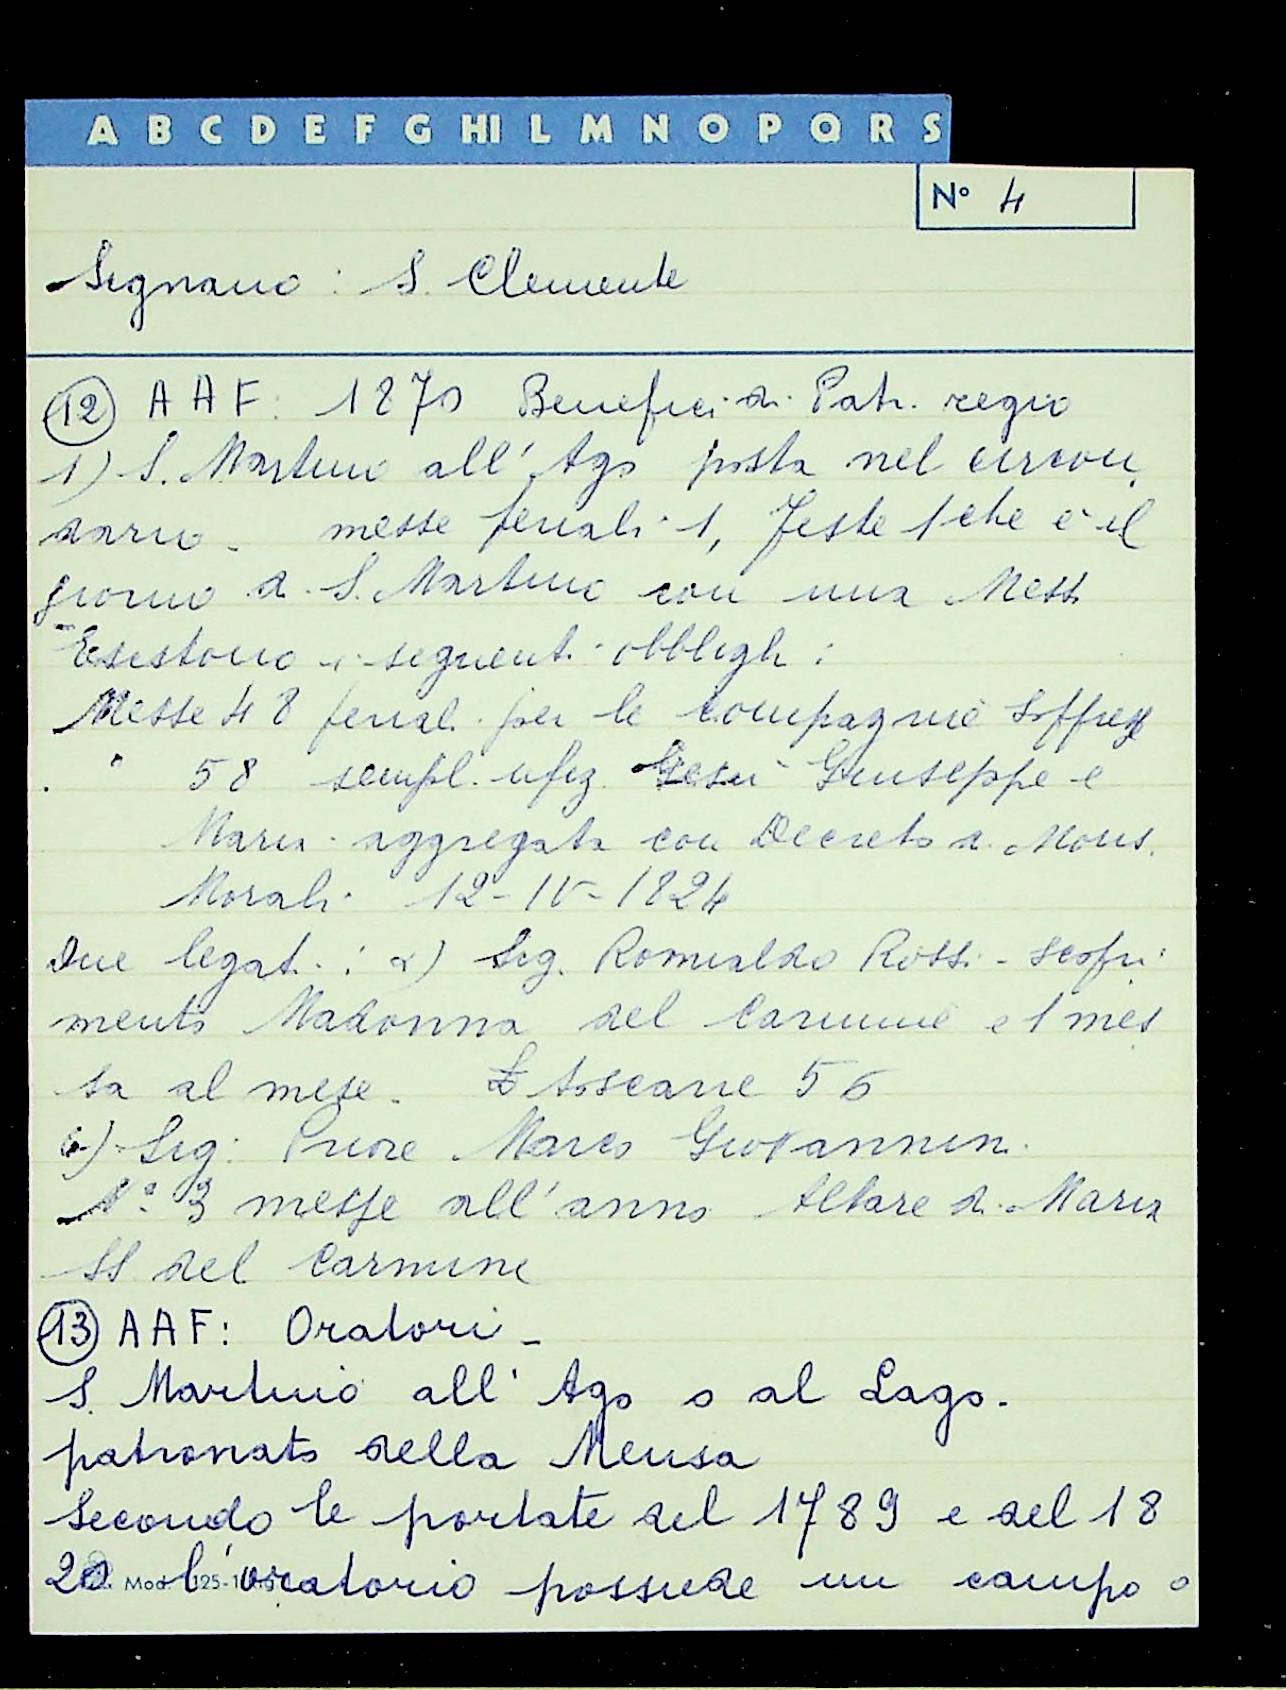 A B C D E F G HI L M N O P Q R S
N° 4
Signano : S. Clemente
(12) A A F : 1870 Benefici di Patr. regio
1) S. Martino all' Ago posta nel circon,
dario - messe feriali 1, Feste 1 che è il
giorno di S. Martino con una Messa
Esistono i seguenti obblighi :
Messe 48 feriali per le compagnie
" 58 sempl. ufiz. Gesù Giuseppe e
Maria - aggregata con Decreto di Mons.
Morali 12-IV-1824
Due legati : a) Sig. Romualdo Rossi - scopri
mento Madonna del Carmine e 1 mes
sa al mese - £ toscane 56
b) Sig: Priore Marco Giovannini
N° 3 messe all' anno Altare di Maria
SS del Carmine
(13) A A F : Oratori -
S. Martino all' Ago o al Lago.
patronato della Mensa
Secondo le portate del 1789 e del 18
20 l'oratorio possiede un campo o